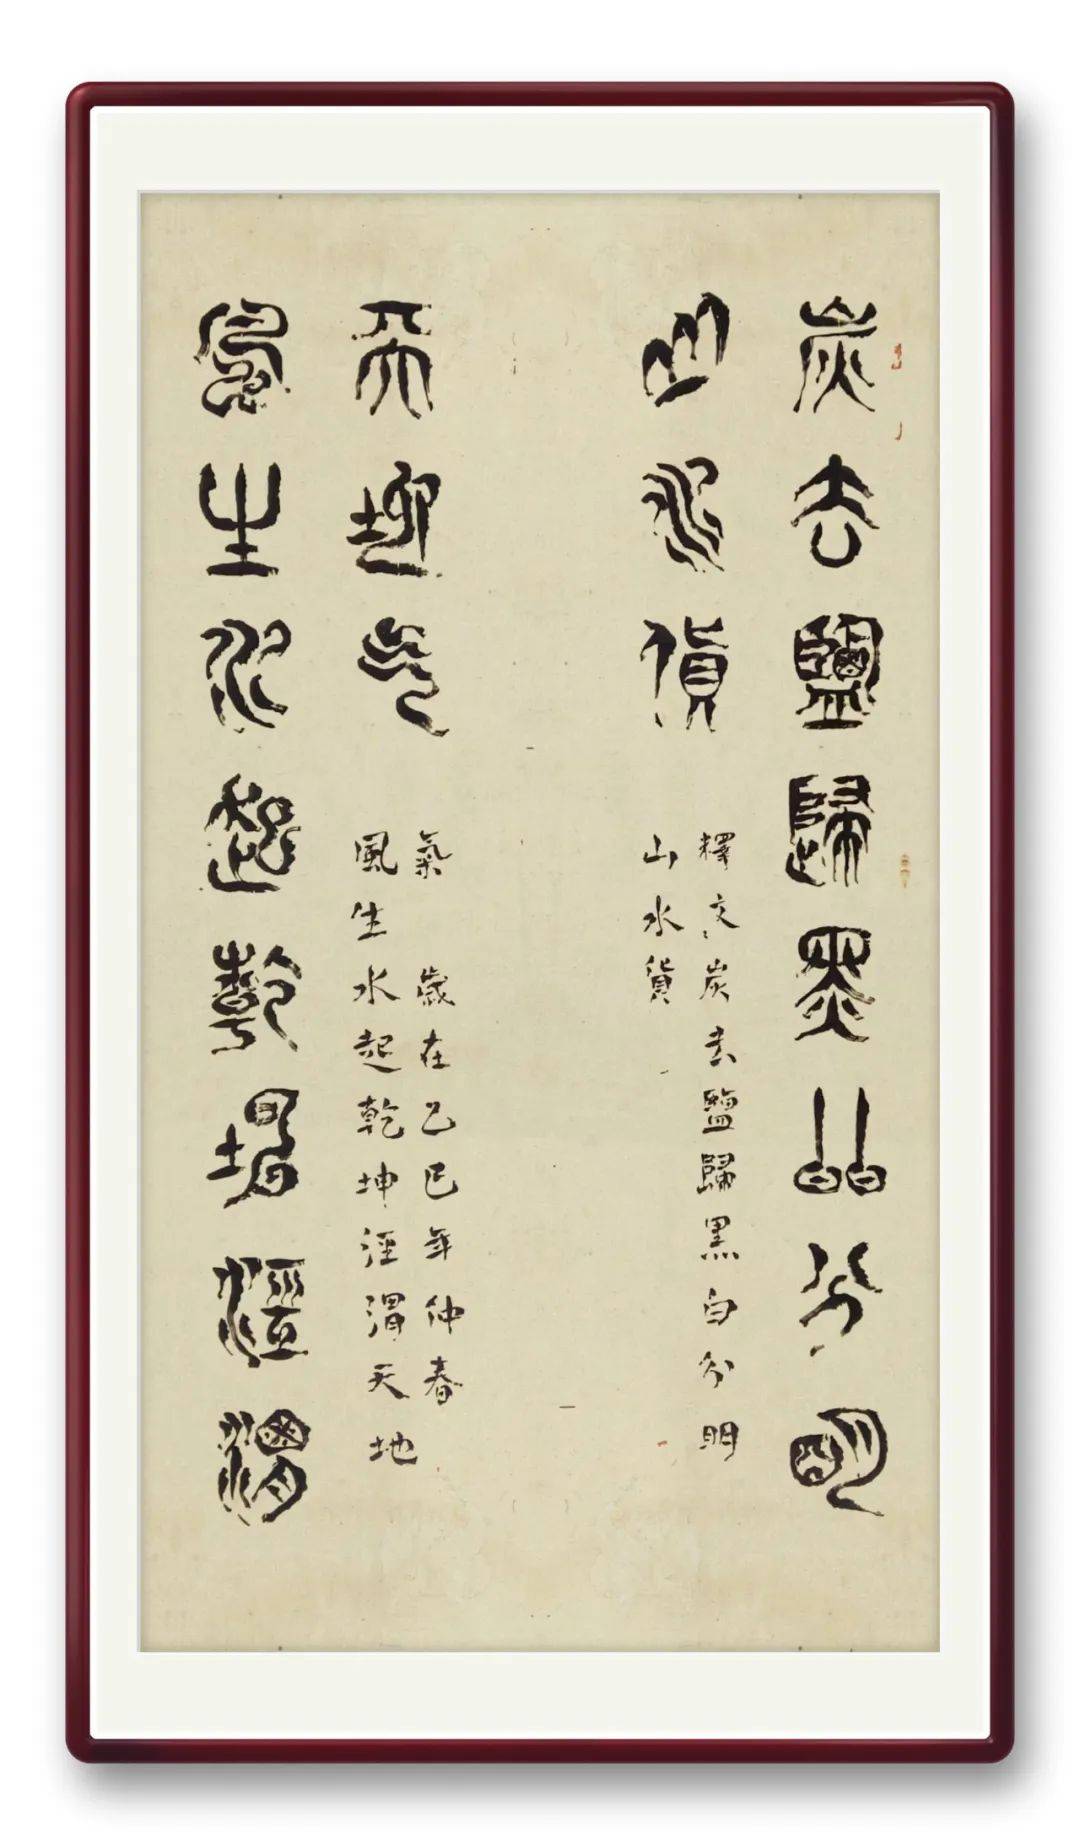 炭去鹽歸黑白分明
山水貨
釋文炭去鹽歸黑白分明
山水貨
風生水起乾坤涇渭
天地氣
風生水起乾坤涇渭天地
氣 歲在乙巳年仲春